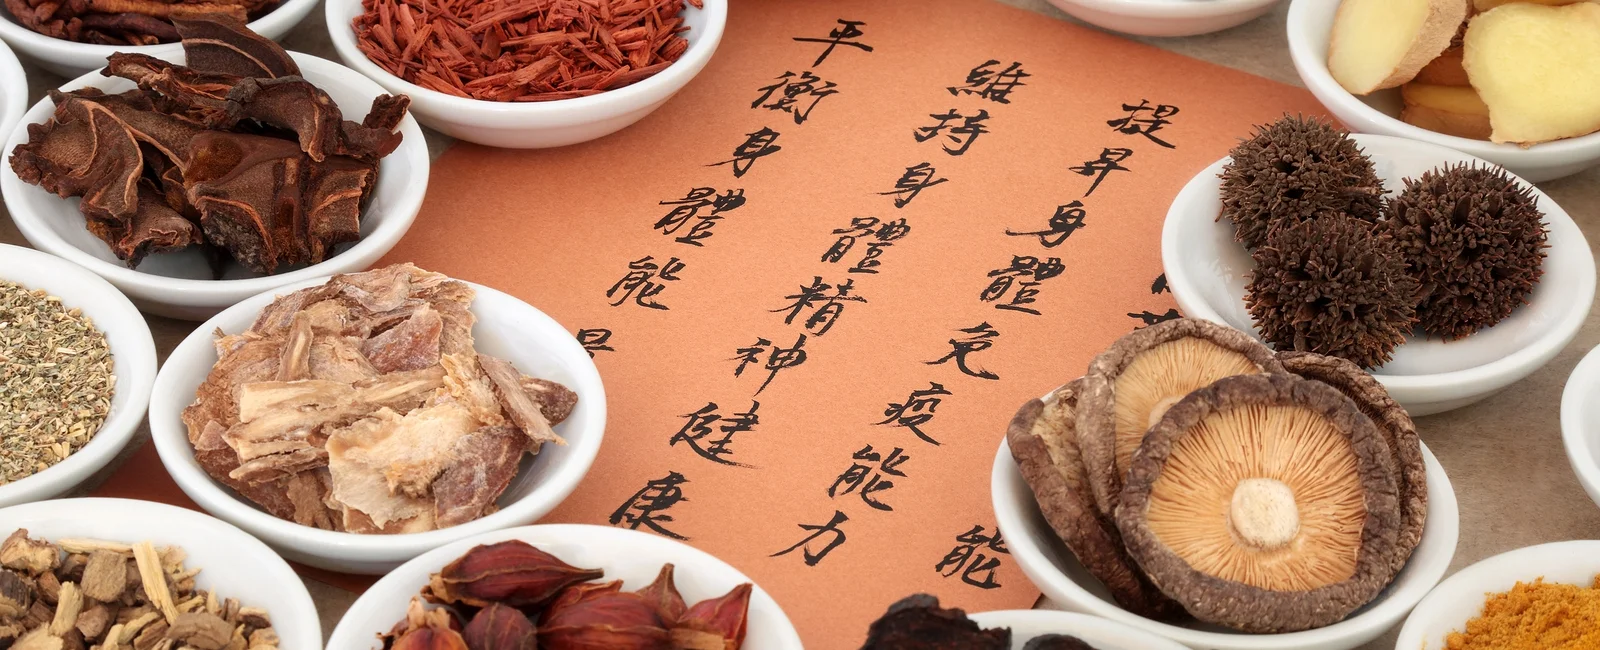 能
提昇身體免疫能力
維持身體精神健康
平衡身體能